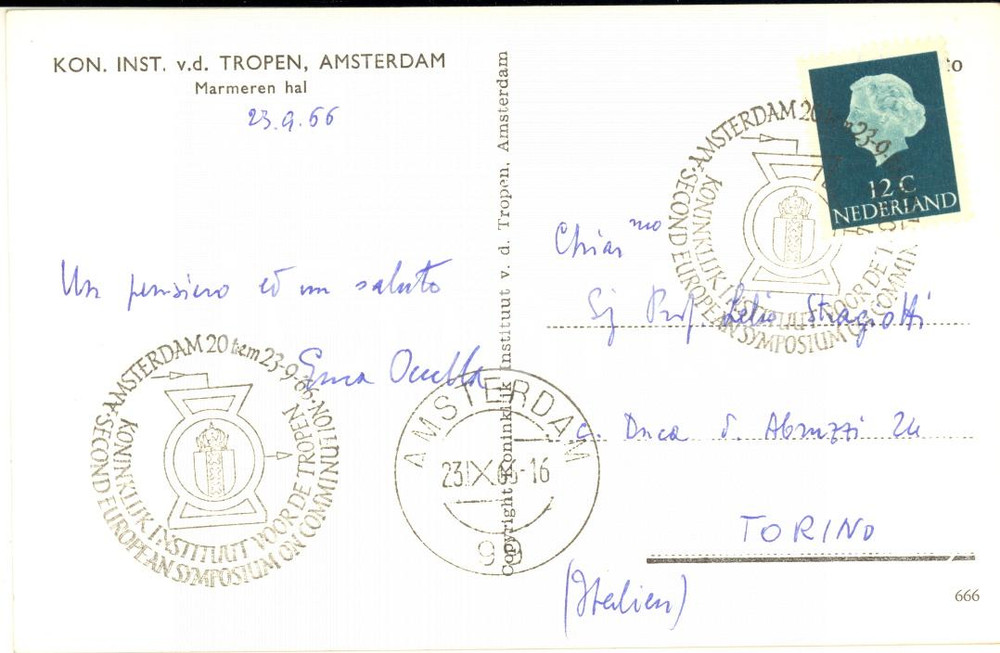 KON. INST. v.d. TROPEN, AMSTERDAM
Marmeren hal
23.9.66
Un pensiero ed un saluto
AMSTERDAM 20 t.m 23-9-66
KONINKLIJK INSTITUUT VOOR DE TROPEN
SECOND EUROPEAN SYMPOSIUM ON COMMINUTION
Copyright Koninklijk Instituut v. d. Tropen, Amsterdam
AMSTERDAM
23 IX 66-16
99
12 C
NEDERLAND
AMSTERDAM 20 23-9
KONINKLIJK INSTITUUT VOOR DE T
SECOND EUROPEAN SYMPOSIUM ON COMMIN
Chiar mo
Sig Prof. Lelio Stragiotti
c. Duca d. Abruzzi 24
TORINO
(Italien)
666